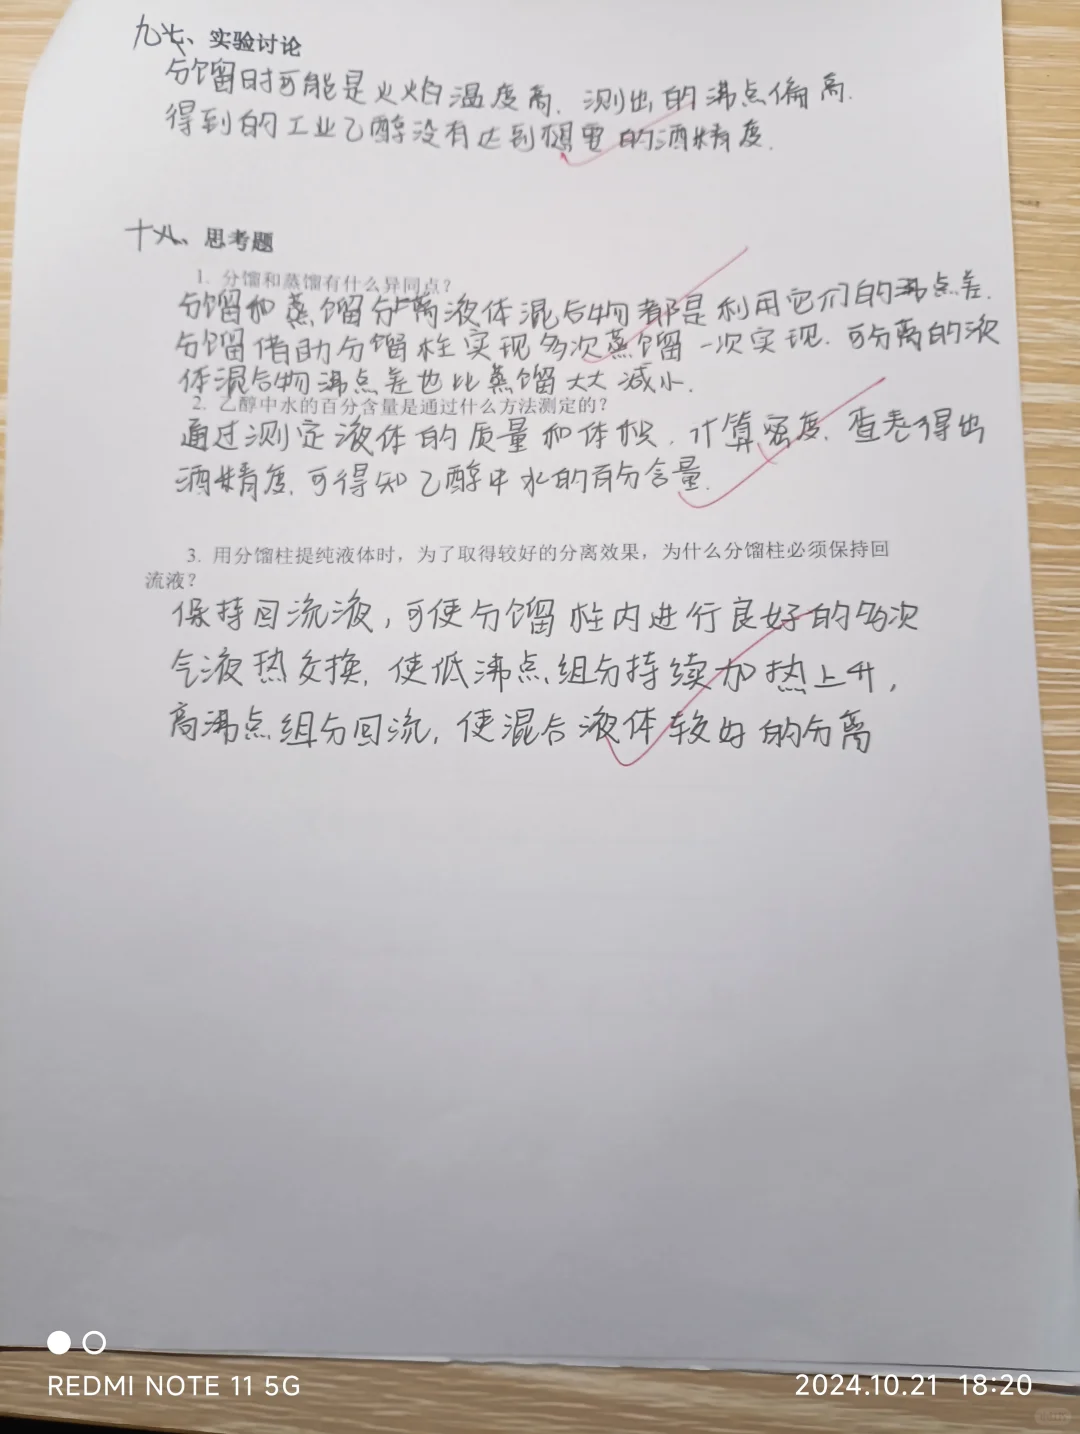 九、实验讨论
分馏时可能是火焰温度高.测出的沸点偏高.
得到的工业乙醇没有达到想要的酒精度.
十、思考题
1. 分馏和蒸馏有什么异同点？
分馏和蒸馏分离液体混合物都是利用它们的沸点差.
分馏借助分馏柱实现多次蒸馏一次实现.可分离的液
体混合物沸点差也比蒸馏大大减小.
2. 乙醇中水的百分含量是通过什么方法测定的？
通过测定液体的质量和体积.计算密度.查表得出
酒精度.可得知乙醇中水的百分含量.
3. 用分馏柱提纯液体时，为了取得较好的分离效果，为什么分馏柱必须保持回
流液？
保持回流液,可使分馏柱内进行良好的多次
气液热交换.使低沸点组分持续加热上升,
高沸点组分回流,使混合液体较好的分离
REDMI NOTE 11 5G
2024.10.21 18:20